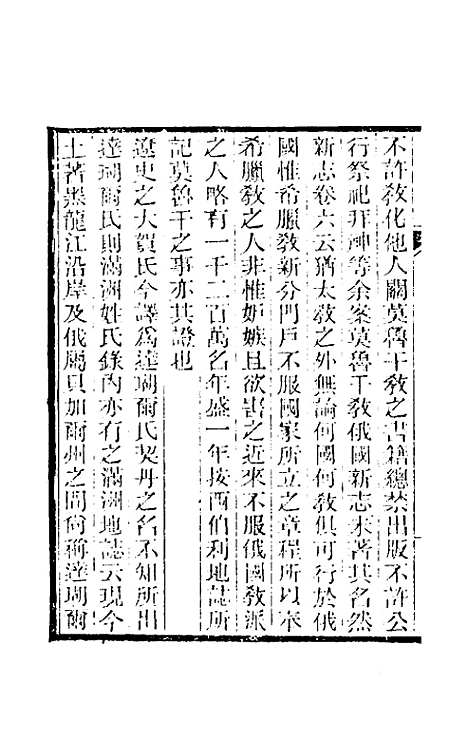 不許教化他人關莫魯干教之書籍總禁出版不許公
行祭祀拜神等余案莫魯干教俄國新志未著其名然
新志卷六云猶太教之外無論何國何教俱可行於俄
國惟希臘教新分門戶不服國家所立之章程所以本
希臘教之人非惟妒嫉且欲害之近來不服俄國教派
之人略有一千二百萬名年盛一年按西伯利地誌所
記莫魯干之事亦其證也
遼史之大賀氏今譯爲達瑚爾氏契丹之名不知所出
達瑚爾氏則滿洲姓氏錄內亦有之滿洲地誌云現今
土著黑龍江沿岸及俄屬貝加爾州之間尚稱達瑚爾